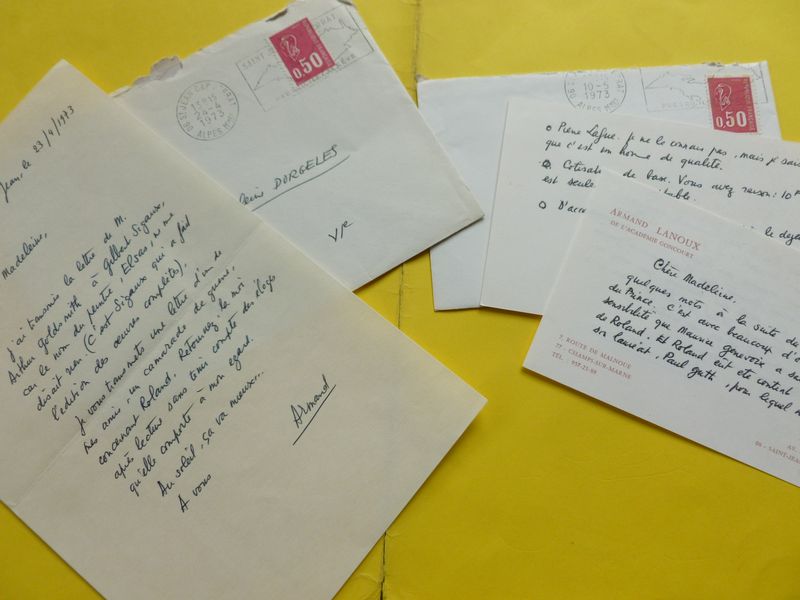 Jean, le 23/4/1973
Madeleine,
J'ai transmis la lettre de M.
Arthur Goldsmith à Gilbert Sigaux,
car le nom du peintre, Elsas, ne me
disait rien (c'est Sigaux qui a fait
l'édition des œuvres complètes).
Je vous transmets une lettre d'un de
mes amis, un camarade de guerre,
concernant Roland. Retournez-la moi
après lecture sans tenir compte des éloges
qu'elle comporte à mon égard.
Au soleil, ça va mieux...
A vous
Armand
06 ST JEAN CAP FERRAT
13H15
24-4
1973
ALPES MMES
SAINT
0.50
DORGELES
V/e
06
10-5
1973
ALPES MMES
0.50
Pierre Lafue. Je ne le connais pas, mais je sais
que c'est un homme de qualité.
de base. Vous avez raison: 10F
est seule
D'acc
ARMAND LANOUX
DE L'ACADÉMIE GONCOURT
Chère Madeleine.
quelques mots à la suite du
du Prince. C'est avec beaucoup d'
sensibilité que Maurice Genevoix a
de Roland. Et Roland eut été content
son lauréat, Paul Guth, pour lequel
7, ROUTE DE MALNOUE
77 - CHAMPS-SUR-MARNE
TÉL. : 957-21-89
06 - SAINT-JEA